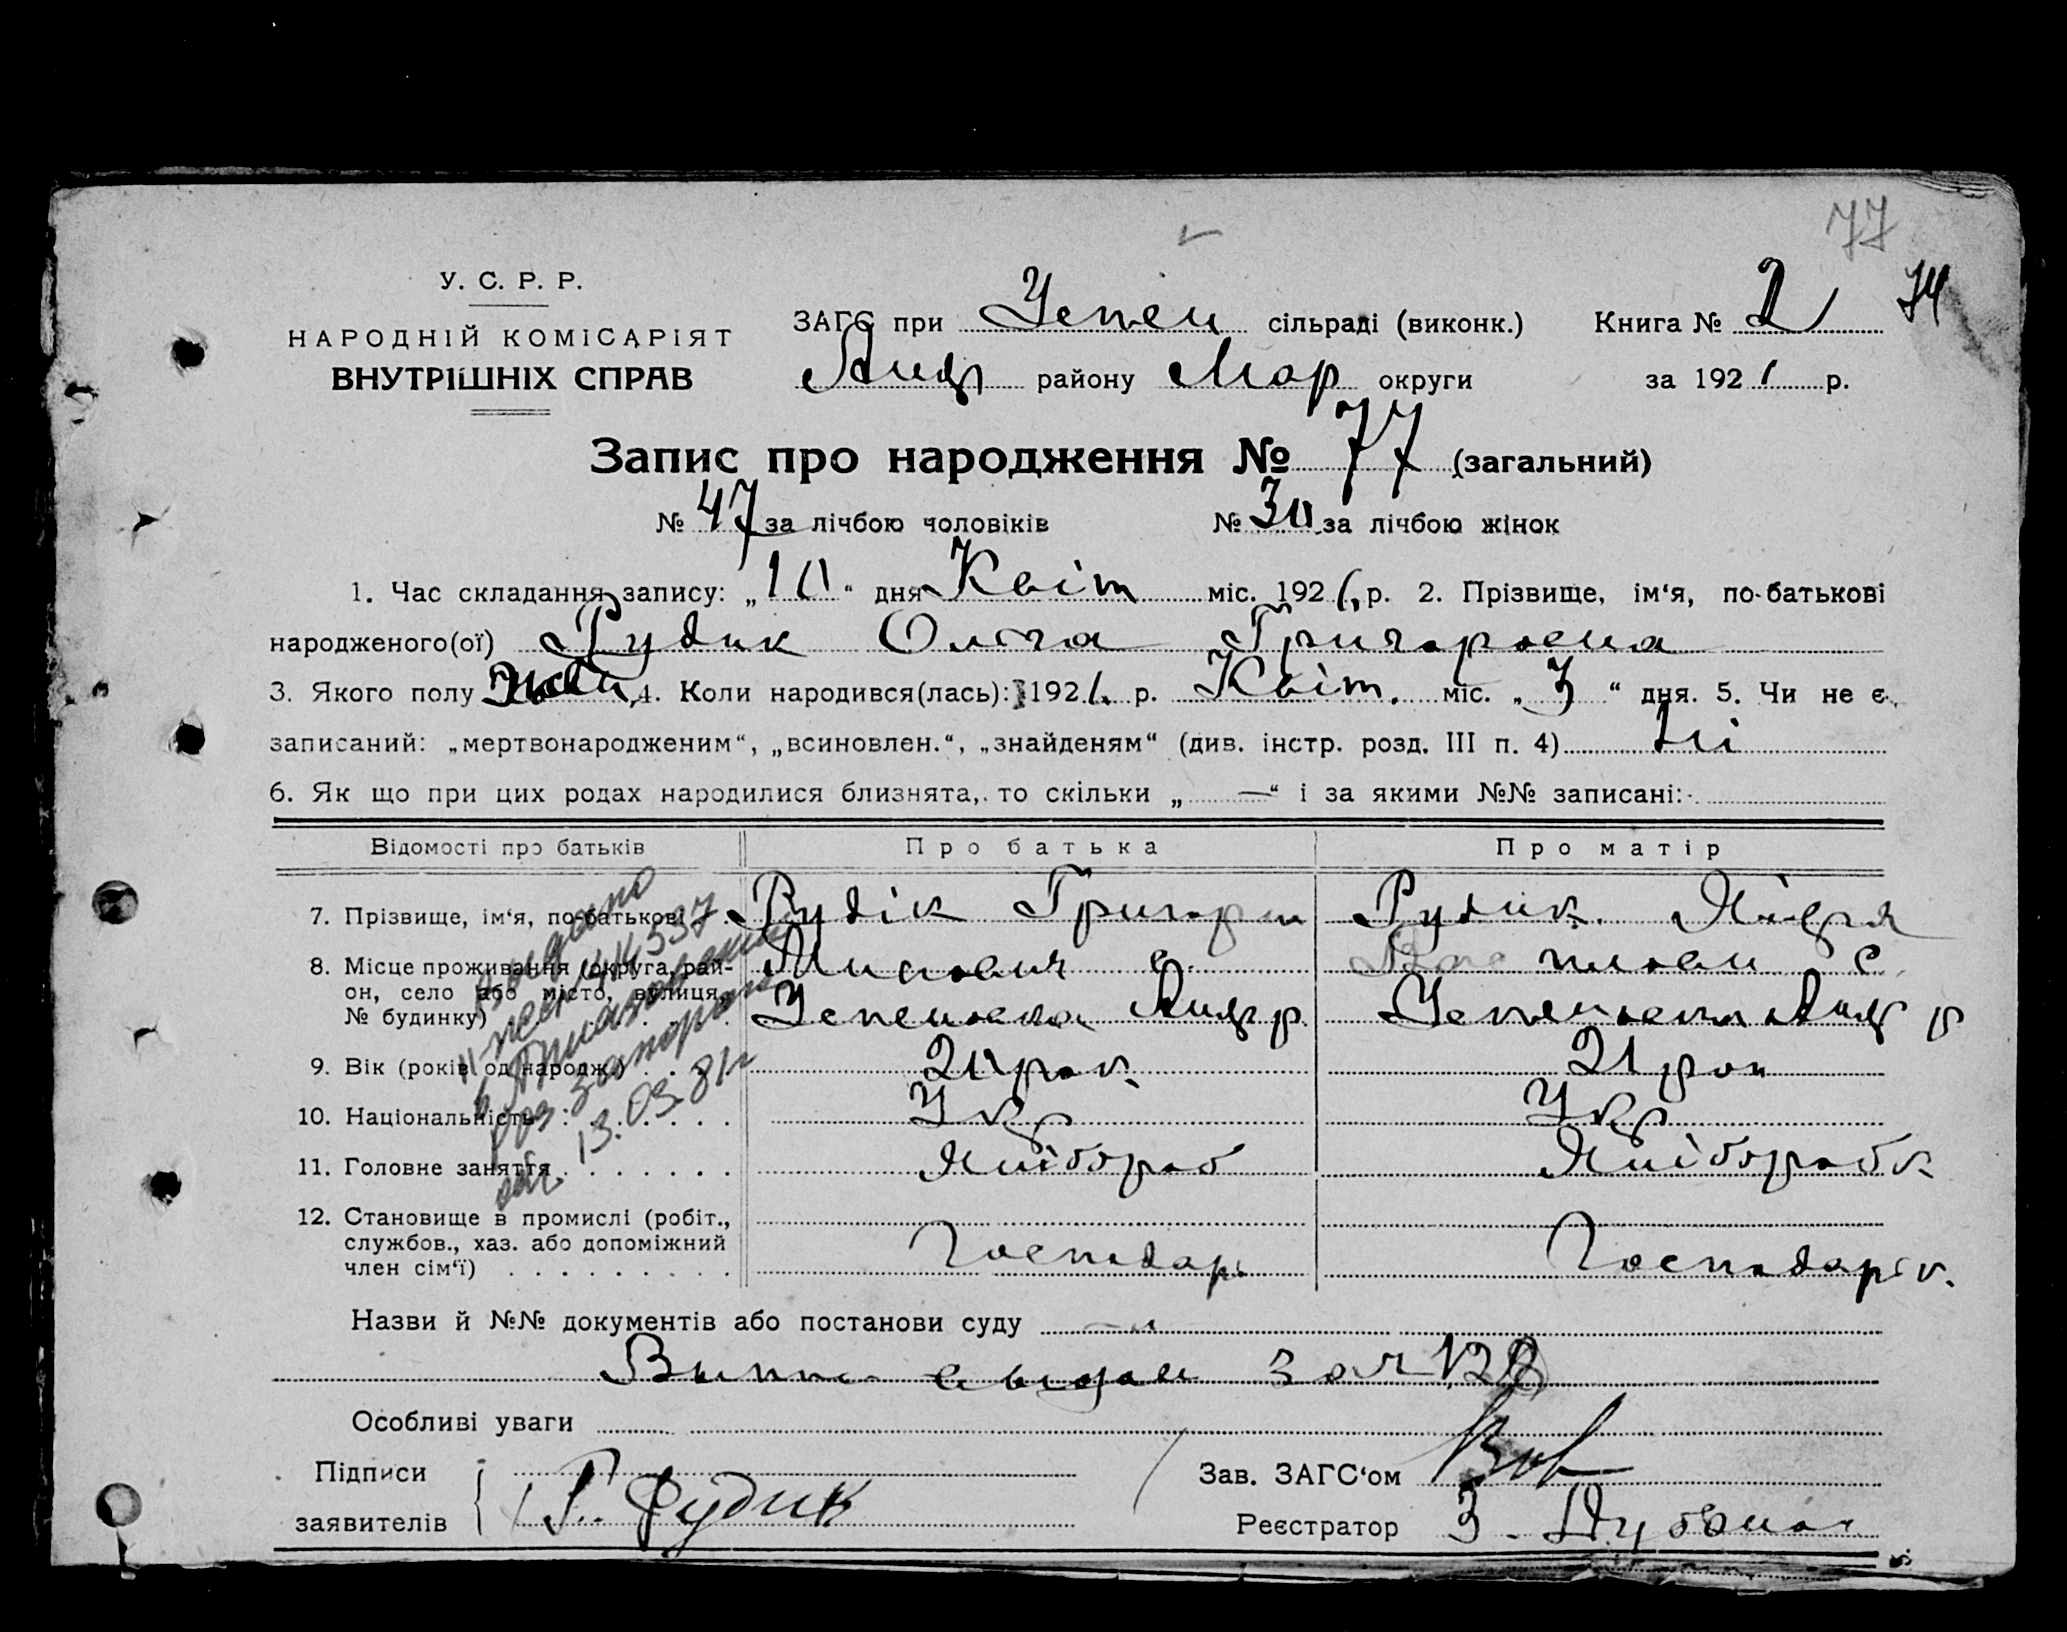 77
У. С. Р. Р.
НАРОДНІЙ КОМІСАРІЯТ
ВНУТРІШНІХ СПРАВ
ЗАГС при Успен сільраді (виконк.) Книга № 2 74
Андр району Мар округи за 192 р.
Запис про народження № 77 (загальний)
№ 47 за лічбою чоловіків № 30 за лічбою жінок
1. Час складання запису: „10“ дня Квіт міс. 192 р. 2. Прізвище, ім‘я, по-батькові
народженого(ої) Рудик Ольга Григорьевна
3. Якого полу 4. Коли народився(лась): 192 р. Квіт. міс. „3“ дня. 5. Чи не є
записаний: „мертвонародженим“, „всиновлен.“, „знайденям“ (див. інстр. розд. III п. 4) Ні
6. Як що при цих родах народилися близнята, то скільки „—“ і за якими №№ записані:
Відомості про батьків Про батька Про матір
7. Прізвище, ім‘я, по-батькові Рудік Григори Рудик
8. Місце проживання (округа, район, село або місто, вулиця, № будинку) с. Андр р. с. Андр р
9. Вік (років од народж.) рок. 21 рок
10. Національність Укр Укр
11. Головне заняття Хлібороб Хлібороб к.
12. Становище в промислі (робіт., службов., хаз. або допоміжний член сім‘ї) Господарь Господарь к.
13.03.81г
Назви й №№ документів або постанови суду
Выпис выдан за № 128
Особливі уваги
Підписи Зав. ЗАГС‘ом
заявителів Г. Рудик Реєстратор З.